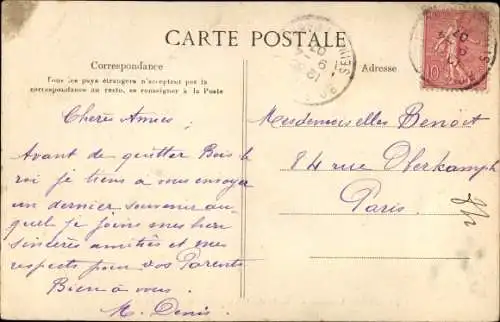 CARTE POSTALE
Correspondance
Tous les pays étrangers n'acceptent pas la
correspondance au recto, se renseigner à la Poste
Adresse
10
Chères Amies;
Avant de quitter Bois le
roi je tiens à vous envoyer
un dernier souvenir au-
quel je joins mes bien
sincères amitiés et mes
respects pour vos Parents
Bien à vous.
M. Denis.
Mesdemoiselles Benoit
84 rue Oberkampf
Paris.